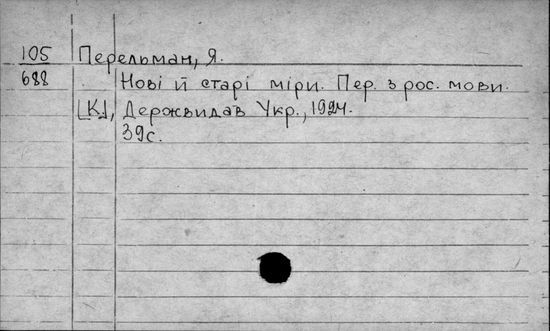 105 Перельман, Я.
688 Нові й старі міри. Пер. з рос. мови.
[К.], Держвидав Укр., 1924.
39с.